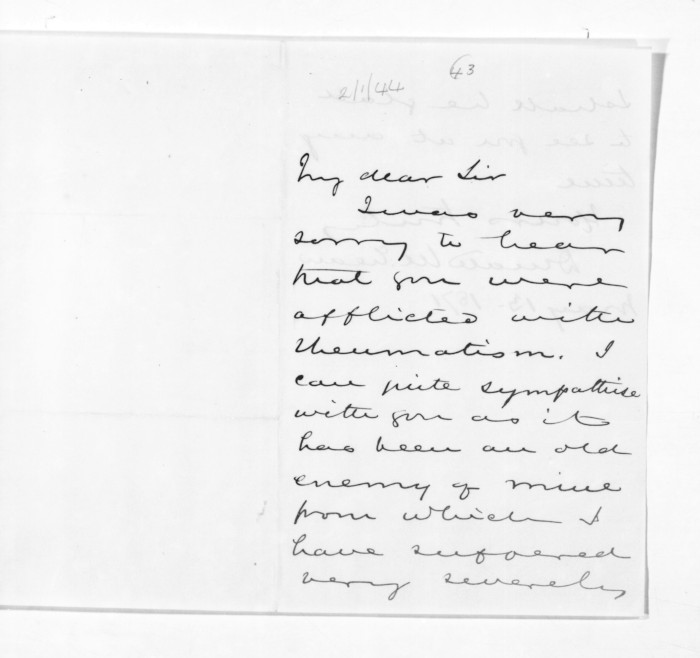 43
2/1/44
My dear Sir
I was very
sorry to hear
that you were
afflicted with
rheumatism. I
can quite sympathise
with you as it
has been an old
enemy of mine
from which I
have suffered
very severely